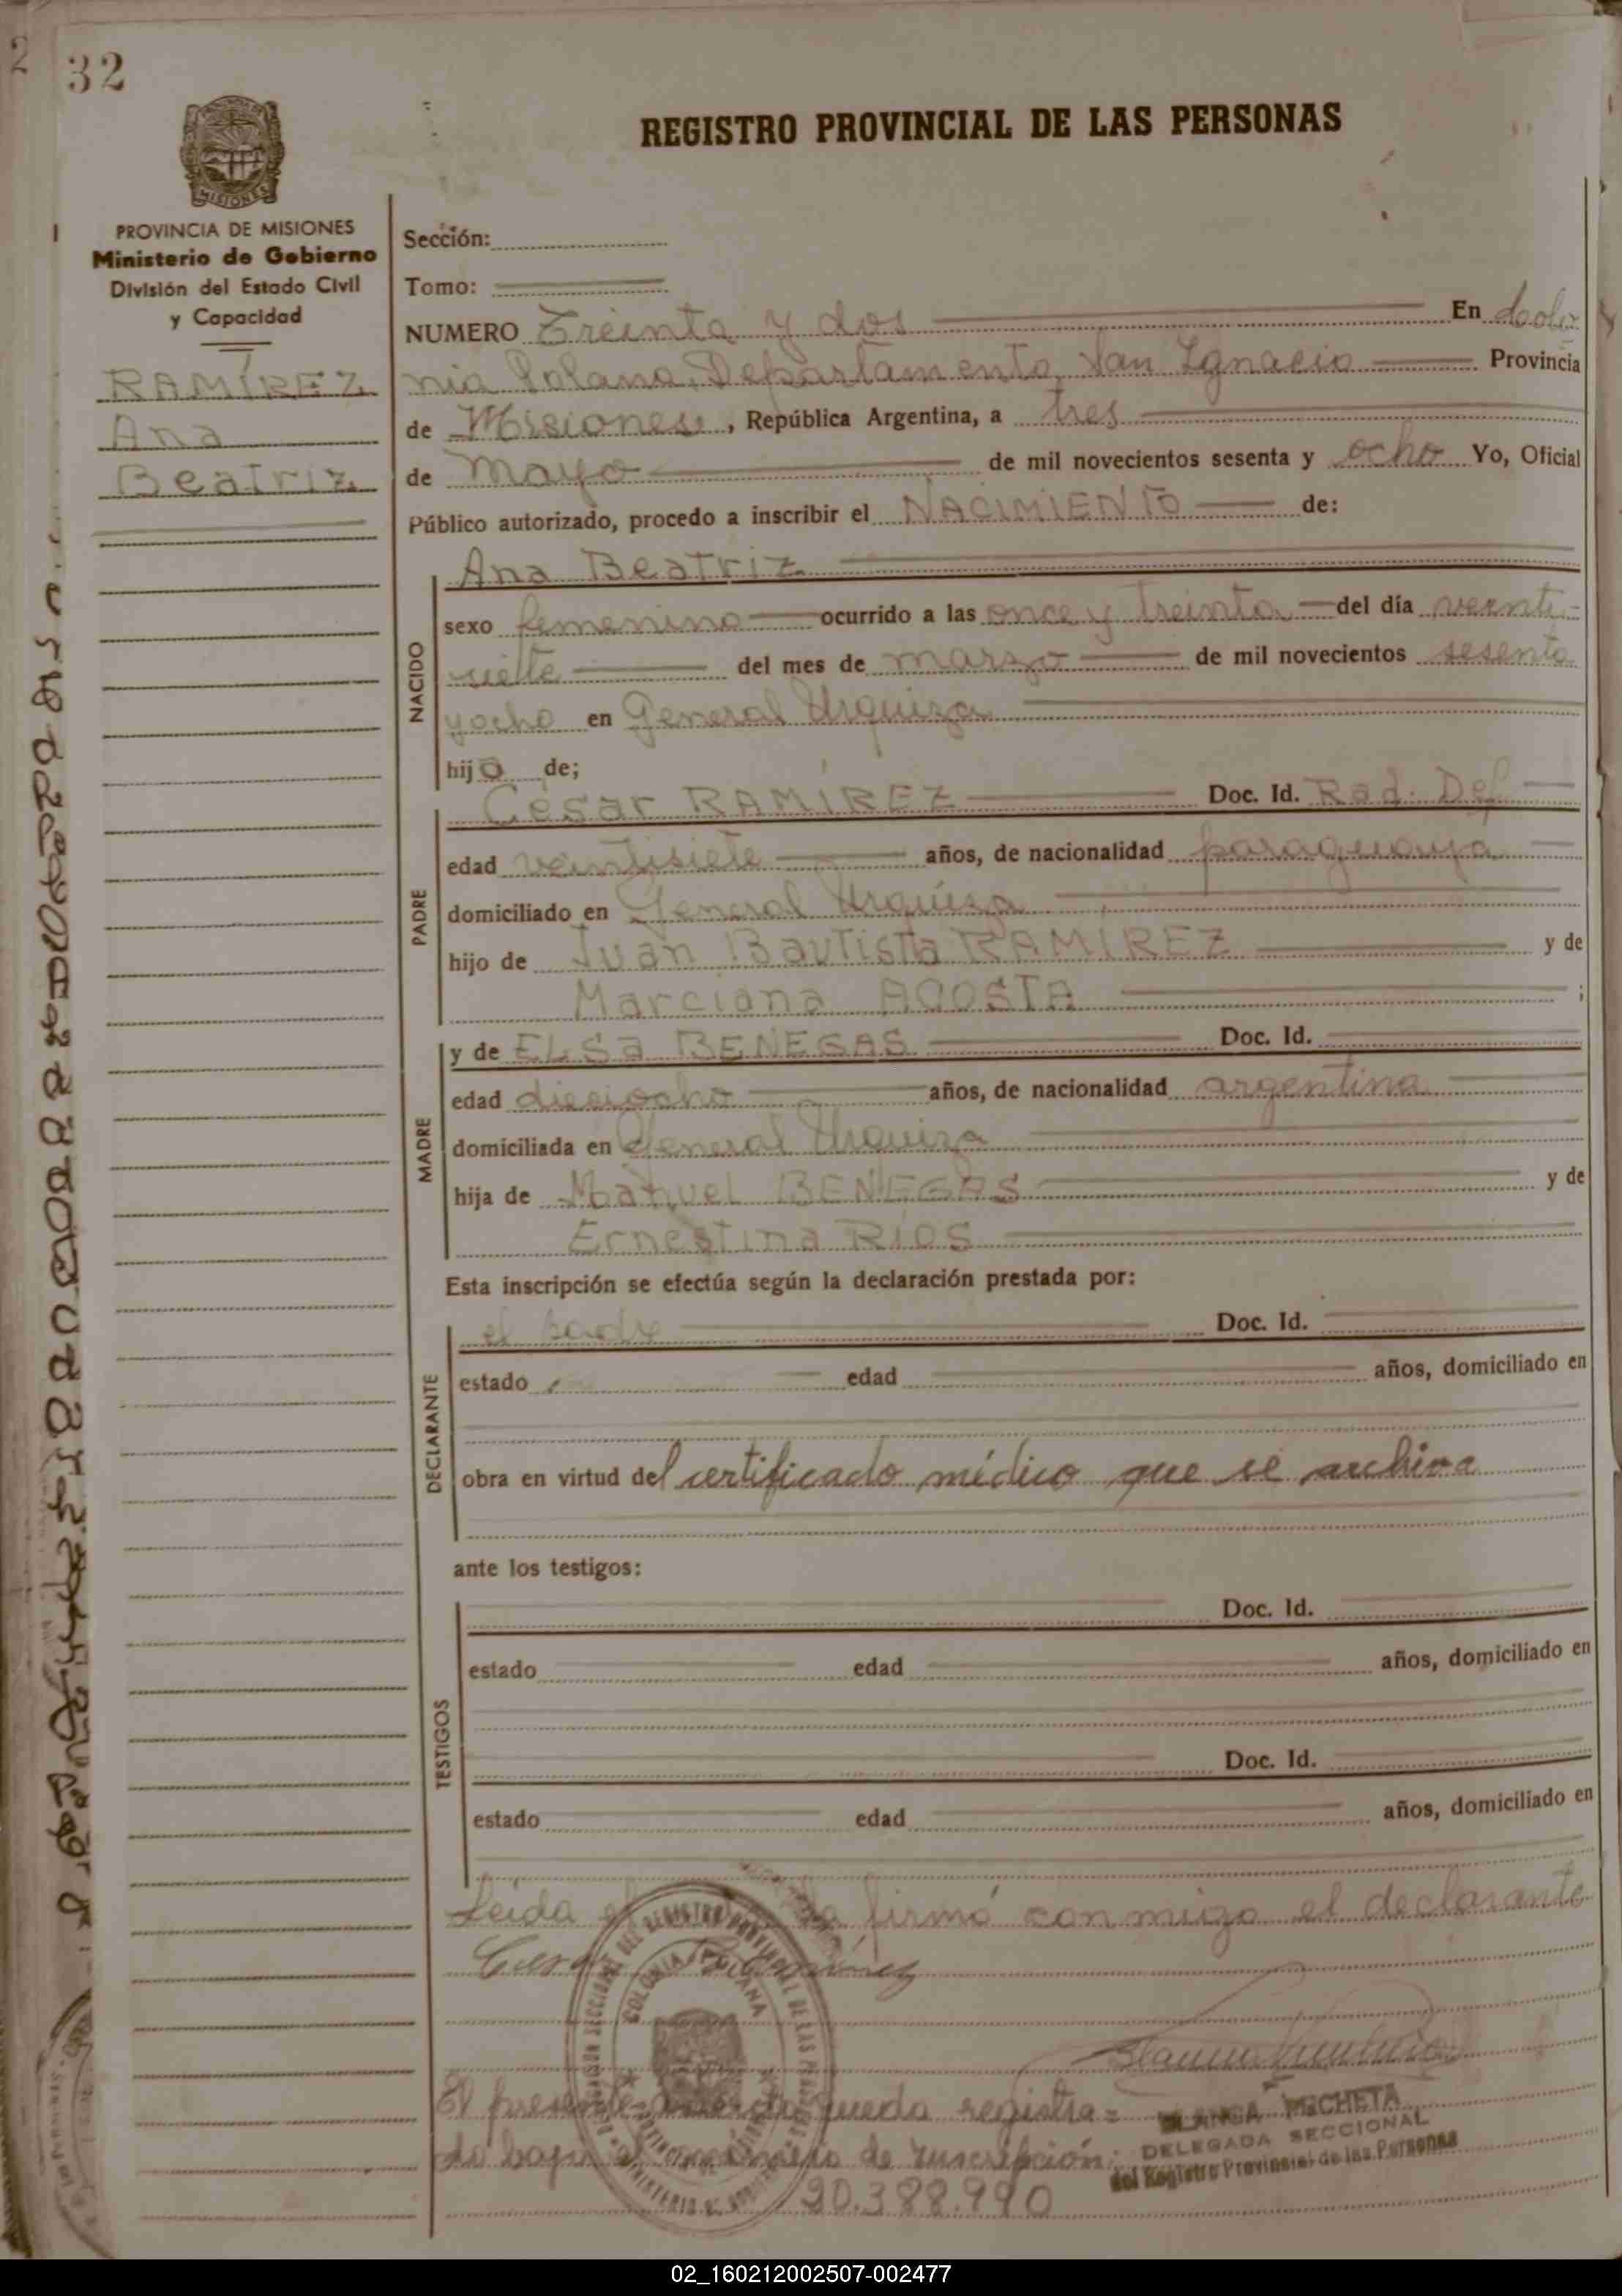 32
REGISTRO PROVINCIAL DE LAS PERSONAS
MISIONES
PROVINCIA DE MISIONES
Ministerio de Gobierno
División del Estado Civil
y Capacidad
RAMÍREZ
Ana
Beatriz
Sección:
Tomo:
NUMERO Treinta y dos En Colo
nia Polana, Departamento San Ignacio Provincia
de Misiones, República Argentina, a tres
de mayo de mil novecientos sesenta y ocho Yo, Oficial
Público autorizado, procedo a inscribir el NACIMIENTO de:
Ana Beatriz
NACIDO
sexo femenino ocurrido a las once y treinta del día veinti-
siete del mes de marzo de mil novecientos sesenta
y ocho en General Urquiza
hija de;
PADRE
César RAMÍREZ Doc. Id. Rad. Def
edad veintisiete años, de nacionalidad paraguaya
domiciliado en General Urquiza
hijo de Juan Bautista RAMIREZ y de
Marciana ACOSTA ;
MADRE
y de ELSa BENEGAS Doc. Id.
edad dieciocho años, de nacionalidad argentina
domiciliada en General Urquiza
hija de Manuel BENEGAS y de
Ernestina RÍOS
Esta inscripción se efectúa según la declaración prestada por:
DECLARANTE
el padre Doc. Id.
estado edad años, domiciliado en
obra en virtud del certificado médico que se archiva
ante los testigos:
TESTIGOS
Doc. Id.
estado edad años, domiciliado en
Doc. Id.
estado edad años, domiciliado en
Leída firmó conmigo el declarante
Cesar Ramírez
El presente queda registra=
do bajo el número de inscripción:
20.388.990
BLANCA PECHETA
DELEGADA SECCIONAL
del Registro Provincial de las Personas
02_160212002507-002477